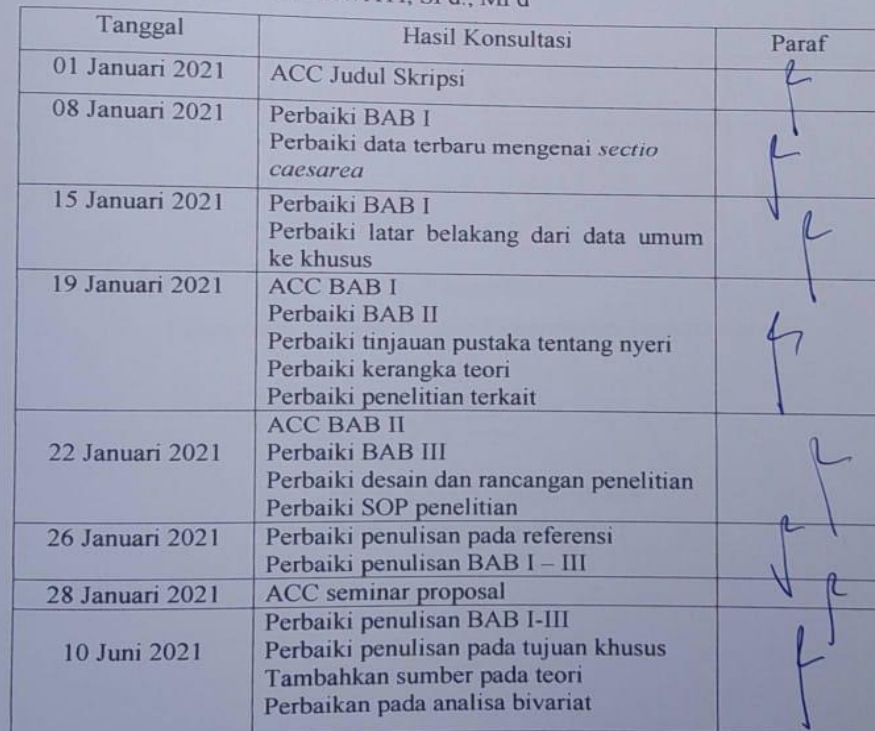 Tanggal Hasil Konsultasi Paraf
01 Januari 2021 ACC Judul Skripsi
08 Januari 2021 Perbaiki BAB I
Perbaiki data terbaru mengenai sectio
caesarea
15 Januari 2021 Perbaiki BAB I
Perbaiki latar belakang dari data umum
ke khusus
19 Januari 2021 ACC BAB I
Perbaiki BAB II
Perbaiki tinjauan pustaka tentang nyeri
Perbaiki kerangka teori
Perbaiki penelitian terkait
ACC BAB II
22 Januari 2021 Perbaiki BAB III
Perbaiki desain dan rancangan penelitian
Perbaiki SOP penelitian
26 Januari 2021 Perbaiki penulisan pada referensi
Perbaiki penulisan BAB I – III
28 Januari 2021 ACC seminar proposal
Perbaiki penulisan BAB I-III
10 Juni 2021 Perbaiki penulisan pada tujuan khusus
Tambahkan sumber pada teori
Perbaikan pada analisa bivariat